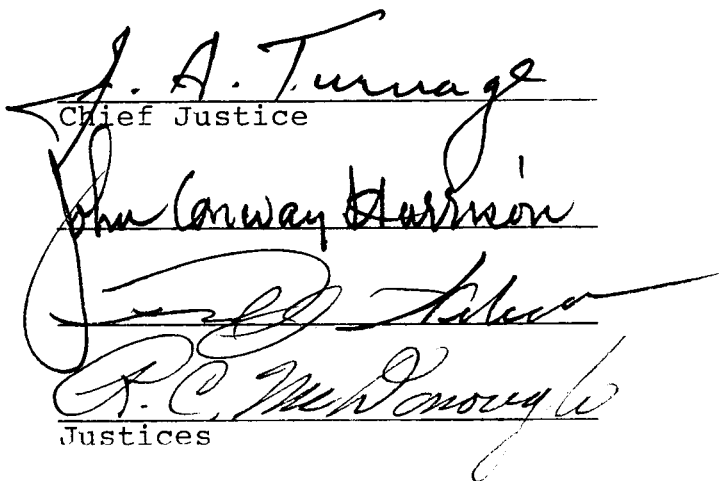 J. A. Turnage
Chief Justice
John Conway Harrison
R. C. McDonough
Justices